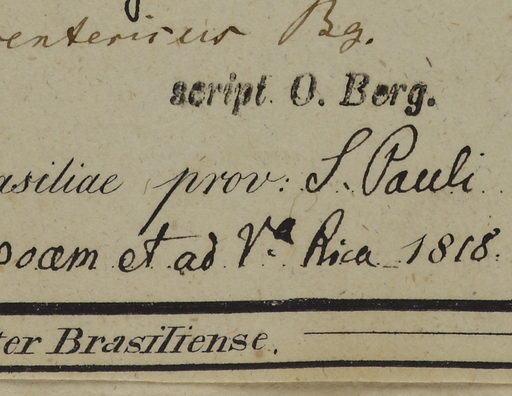 entericus Bg.
script. O. Berg.
asiliae prov: S. Pauli
poæm et ad V.ª Rica 1818.
ter Brasiliense.